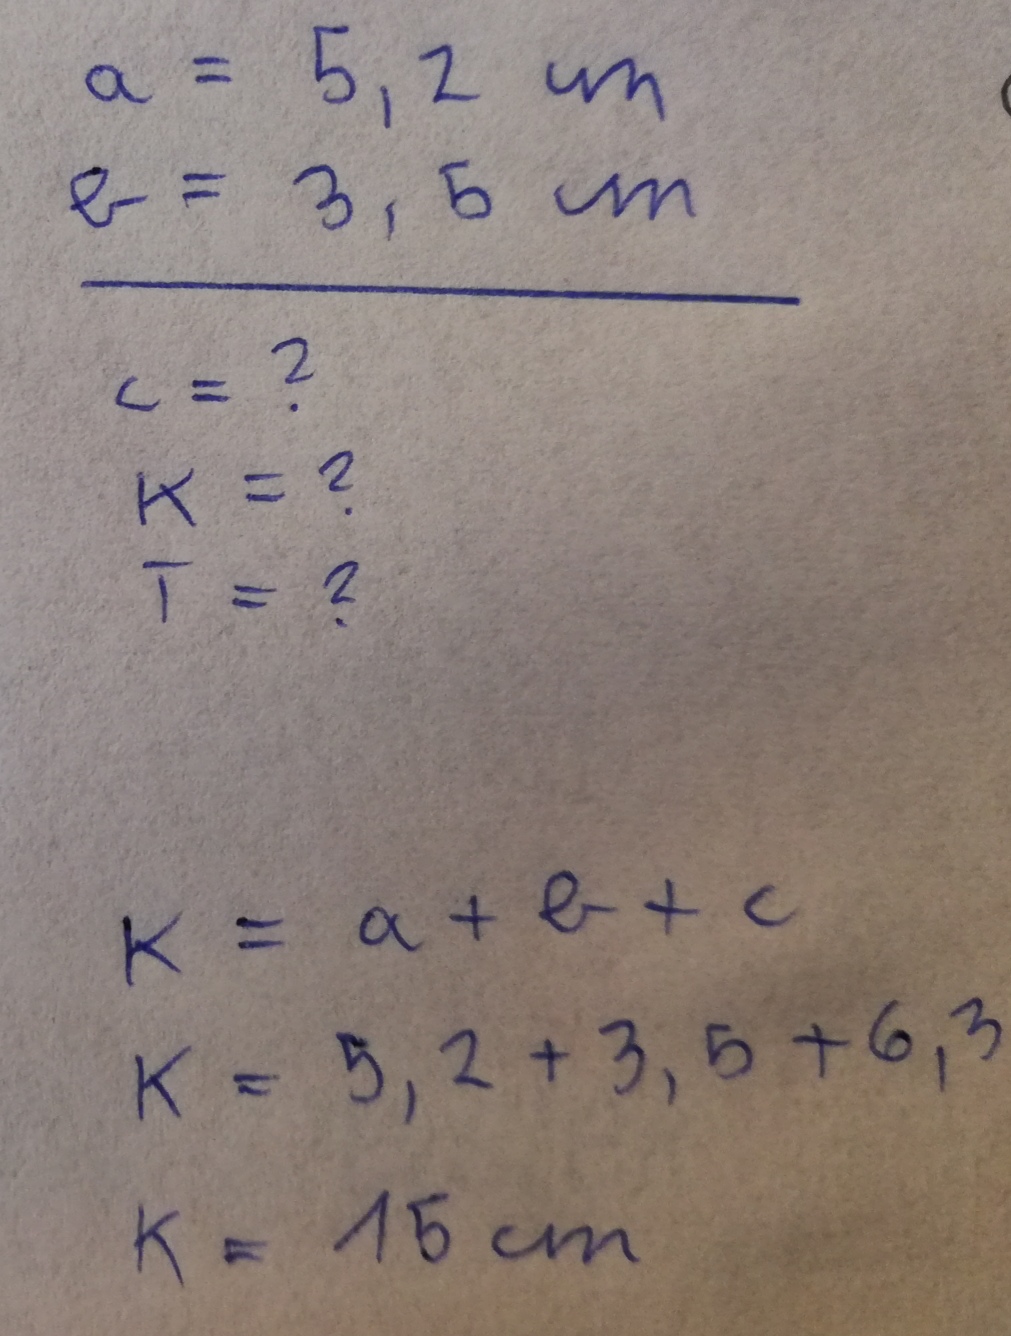 a = 5,2 cm
b = 3,5 cm
c = ?
K = ?
T = ?
K = a + b + c
K = 5,2 + 3,5 + 6,3
K = 15 cm